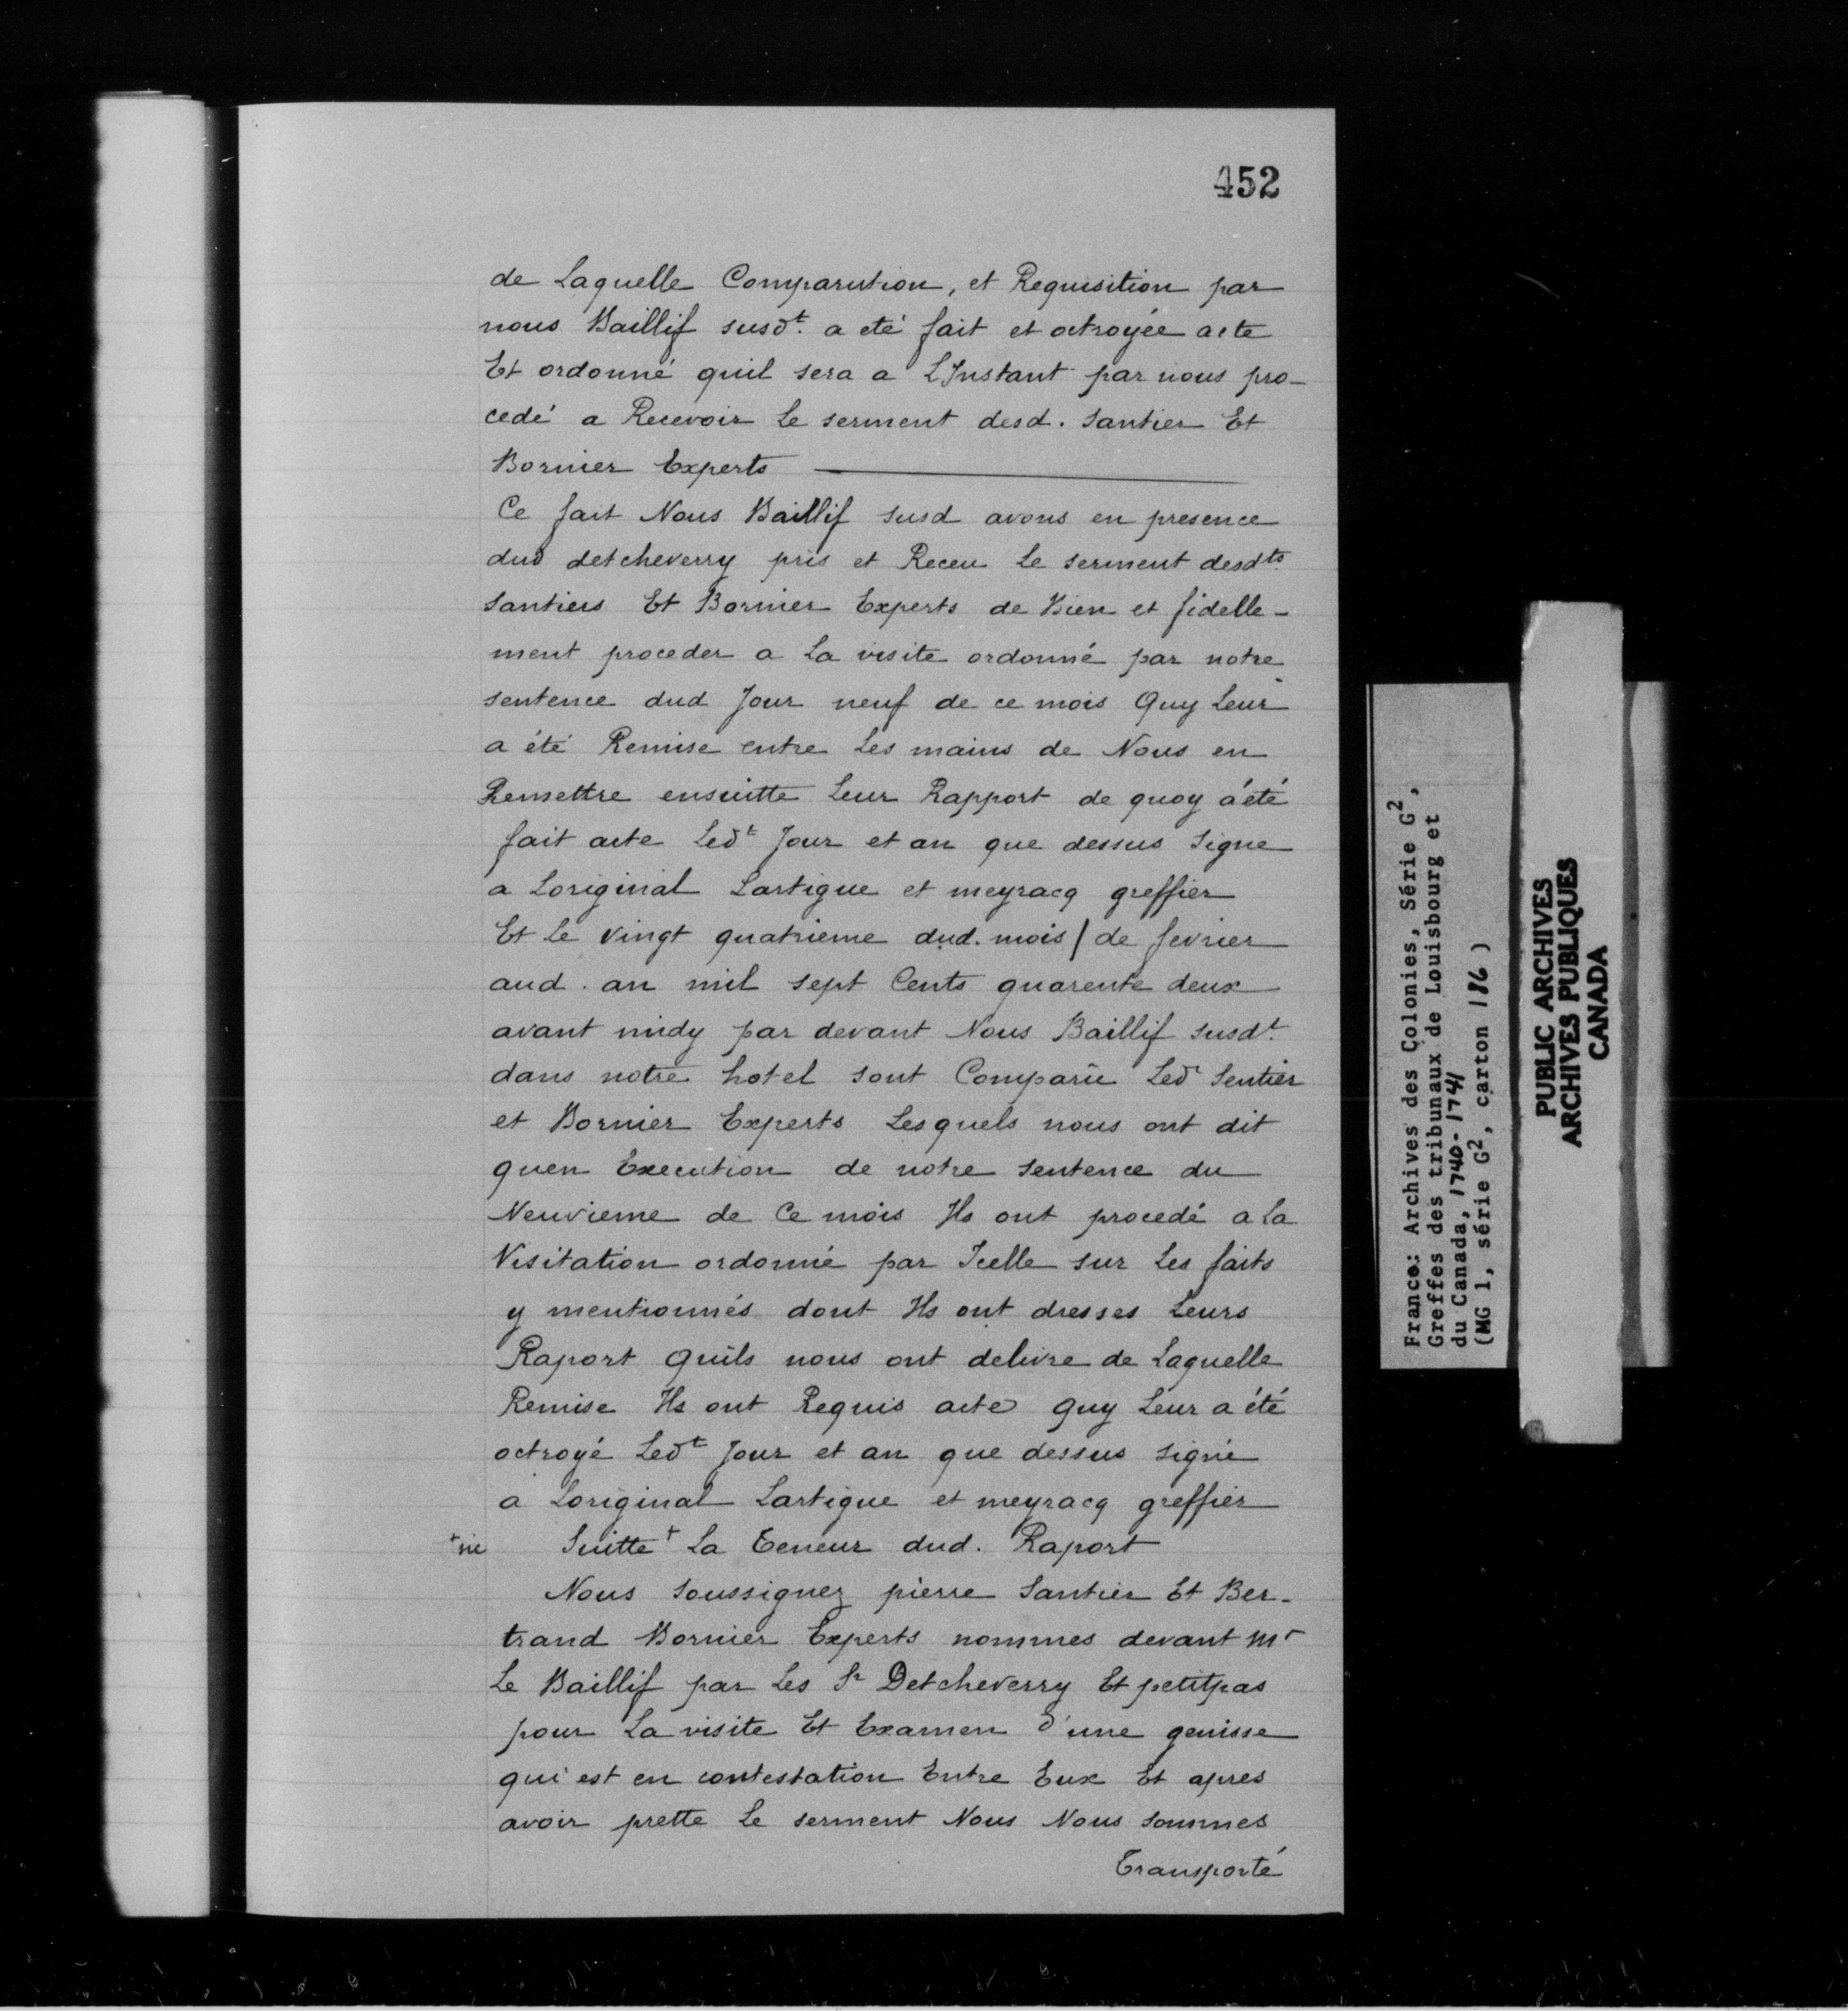 452
de Laquelle Comparution, et Requisition par
nous Baillif susdt. a eté fait et octroyée acte
Et ordonné quil sera a LJnstant par nous pro-
cedé a Recevoir Le serment desd. Santier Et
Bornier Experts
Ce fait Nous Baillif susd avons en presence
dud detcheverry pris et Receu Le serment desdts
Santiers Et Bornier Experts de Bien et fidelle-
ment proceder a La visite ordonné par notre
sentence dud Jour neuf de ce mois Quy Leur
a été Remise entre Les mains de Nous en
Remettre ensuitte Leur Rapport de quoy a été
fait acte Ledt Jour et an que dessus Signe
a Loriginal Lartigue et meyracq greffier
Et Le vingt quatrieme dud. mois / de fevrier
aud. an mil sept Cents quarente deux
avant midy par devant Nous Baillif susdt.
dans notre hotel sont Comparû Ledt Sentier
et Bornier Experts Lesquels nous ont dit
quen Execution de notre sentence du
Neuvieme de Ce mois Ils ont procedé a La
Visitation ordonné par Jcelle sur Les faits
y mentionnés dont Ils ont dresses Leurs
Raport Quils nous ont delivre de Laquelle
Remise Ils ont Requis acte Quy Leur a été
octroyé Ledt Jour et an que dessus signé
a Loriginal Lartigue et meyracq greffier
+sic Suitte + La Teneur dud. Raport
Nous Soussignez pierre Santier Et Ber-
trand Bornier Experts nommes devant Mr
Le Baillif par Les Sr Detcheverry Et petitpas
pour La visite Et Examen d'une genisse
qui est en contestation Entre Eux Et apres
avoir prette Le serment Nous Nous sommes
Transporté
France: Archives des Colonies, Série G2,
Greffes des tribunaux de Louisbourg et
du Canada, 1740-1741
(MG 1, série G2, carton 186)
PUBLIC ARCHIVES
ARCHIVES PUBLIQUES
CANADA